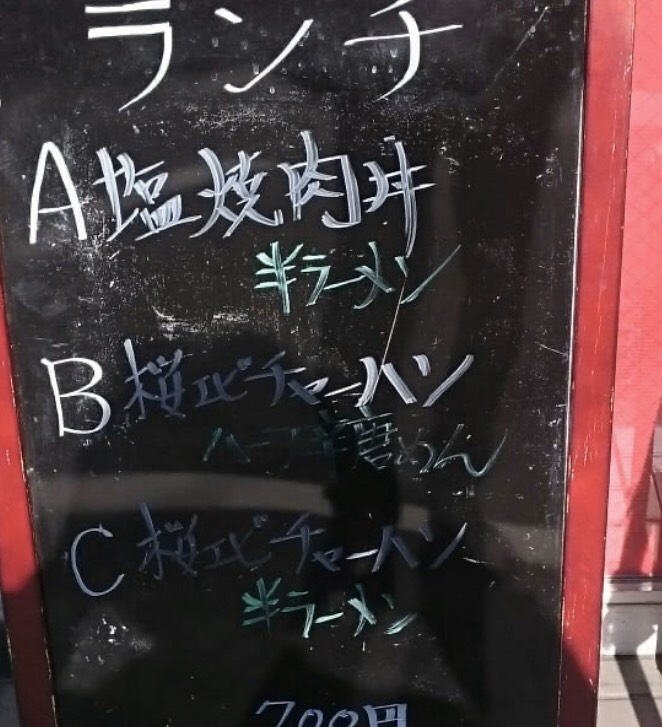 ランチ
A 塩焼肉丼
半ラーメン
B 桜エビチャーハン
ハーフ辛唐めん
C 桜エビチャーハン
半ラーメン
700円